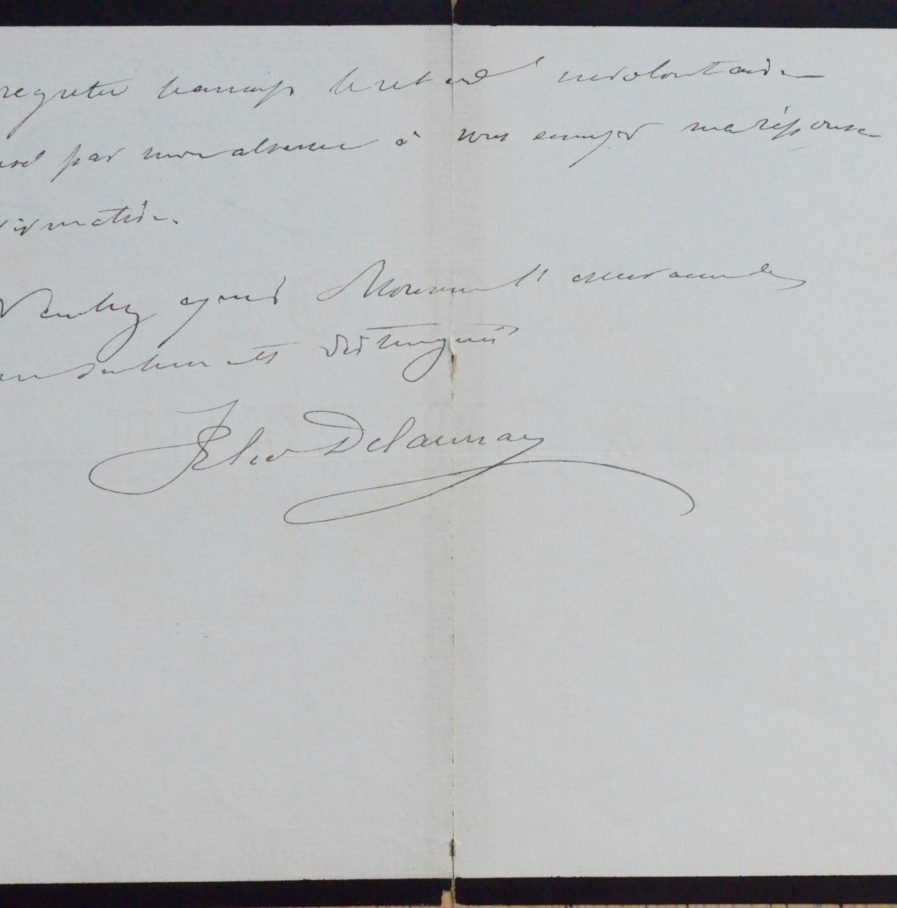 regretter beaucoup le retard involontaire
par mon absence à vous envoyer ma réponse
Veuillez agréer Monsieur l'assurance de
sentiments distingués
Elie Delaunay